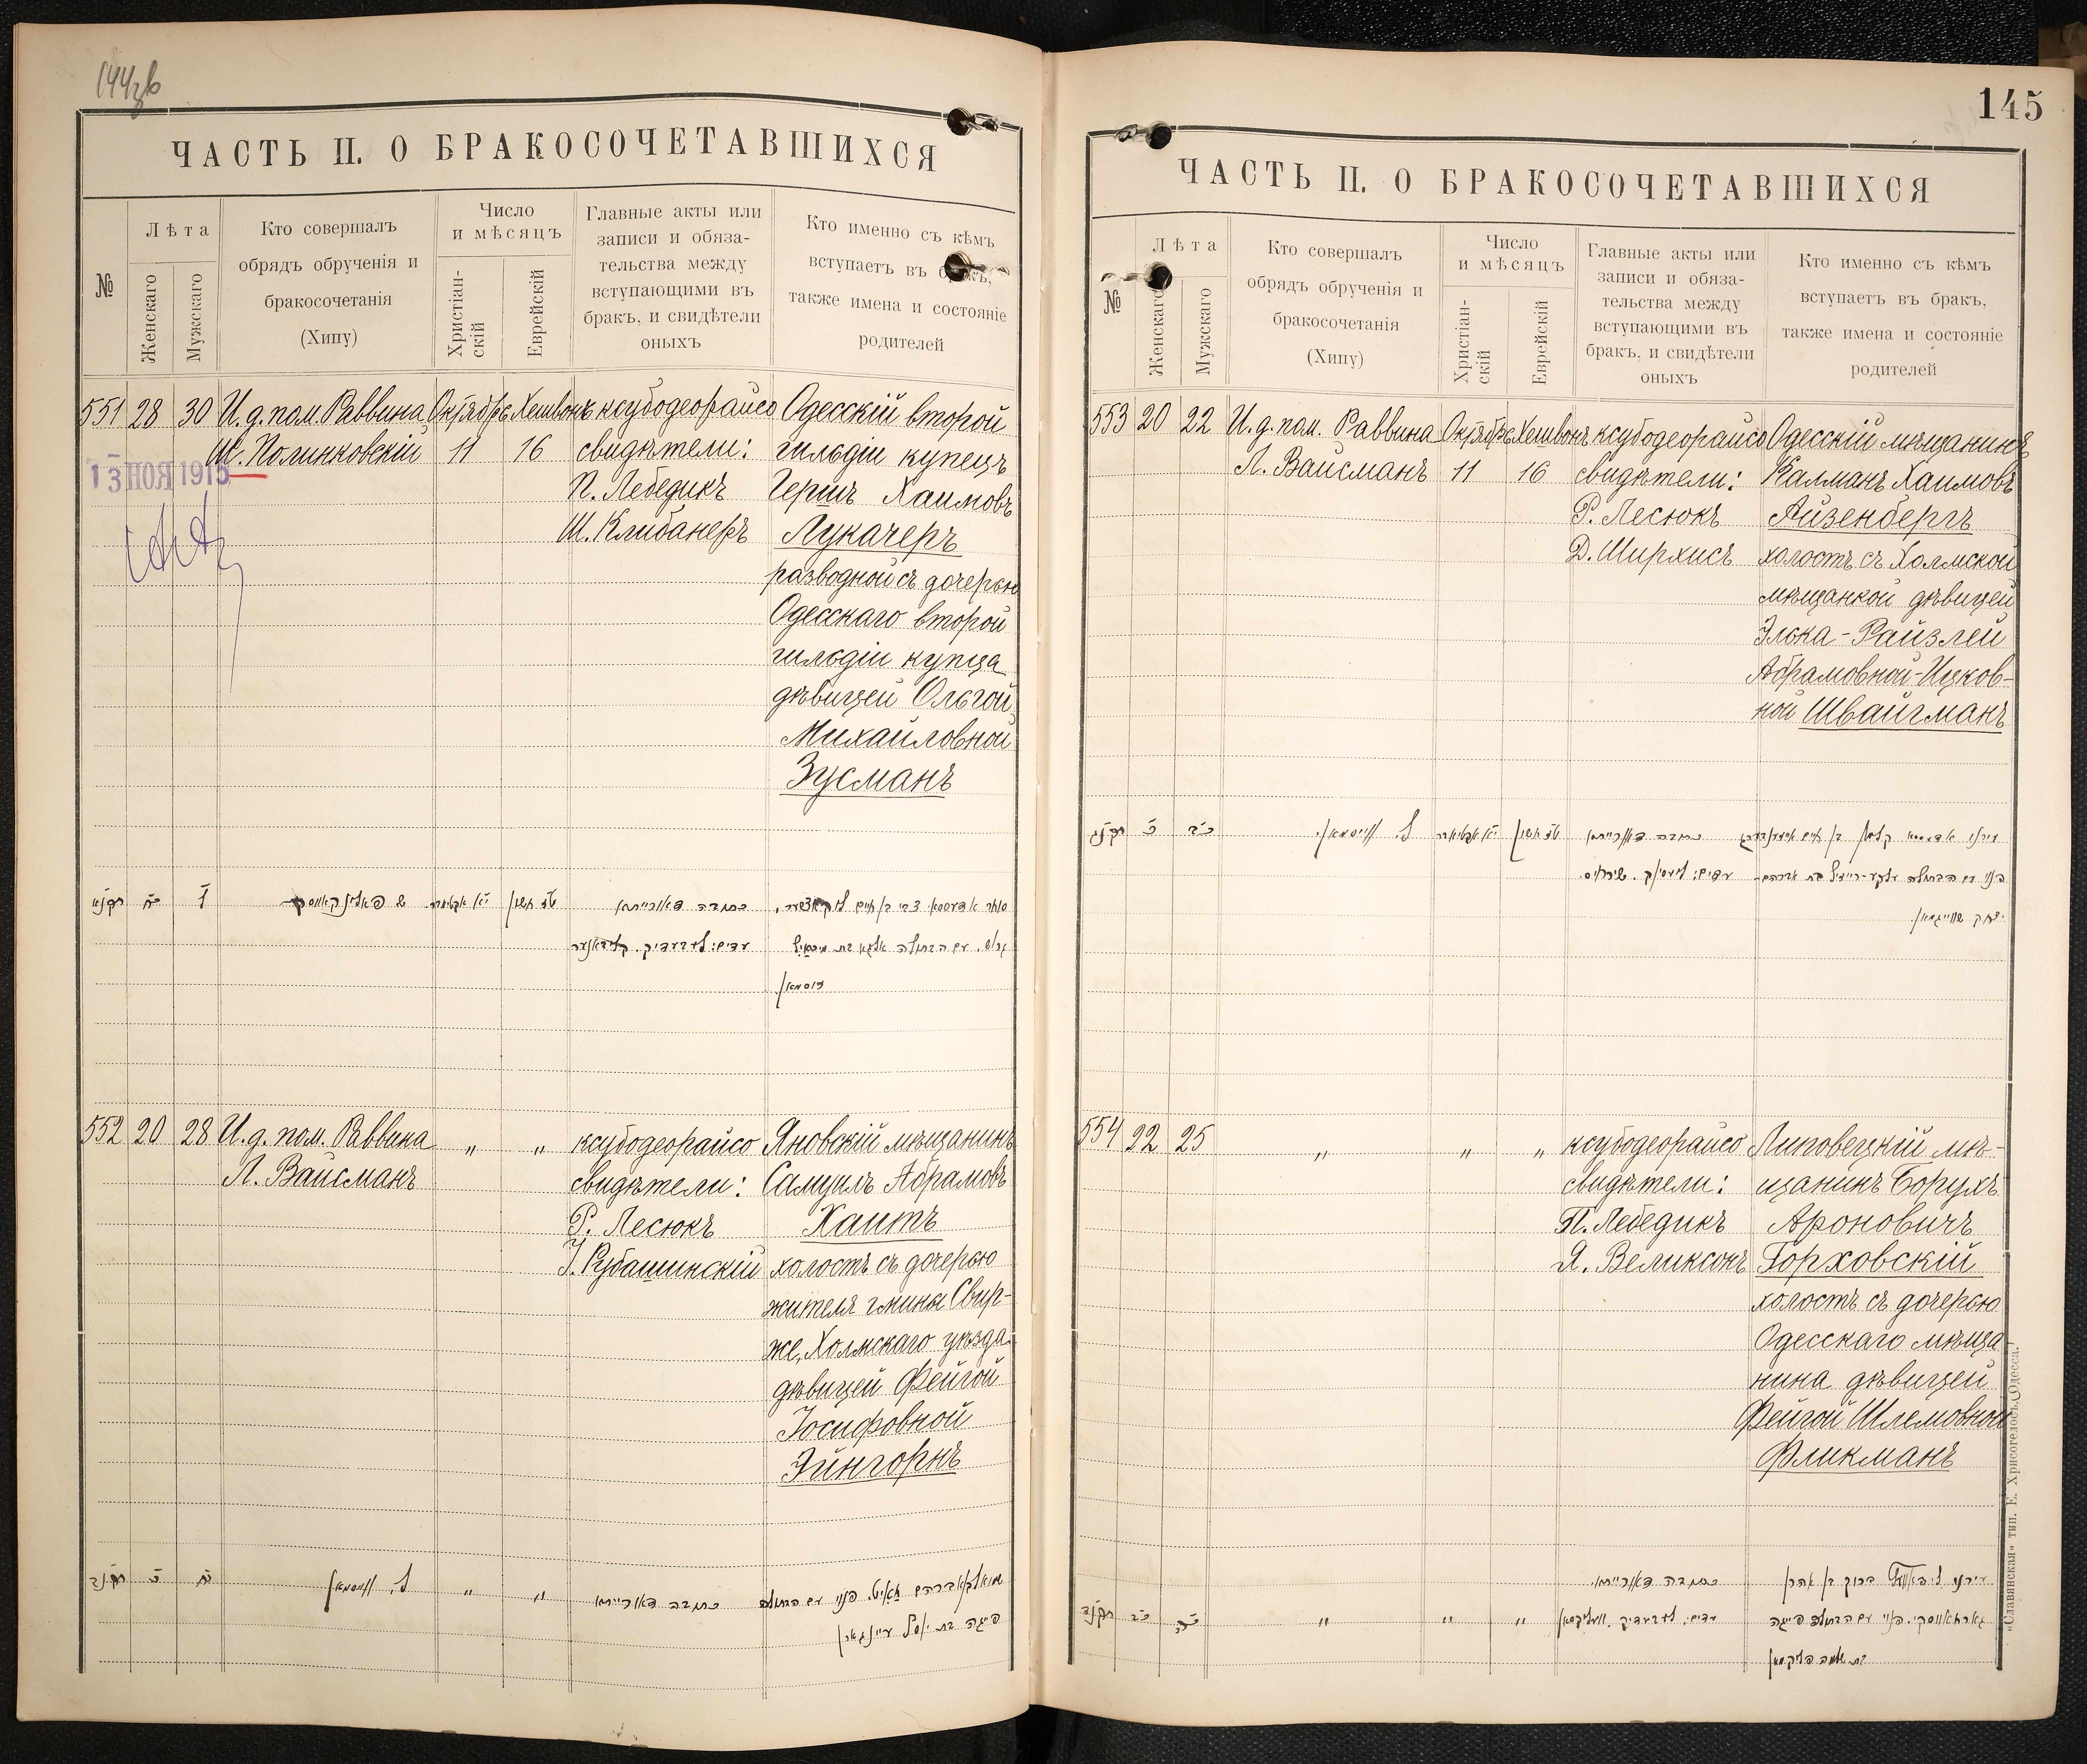 144 зв
ЧАСТЬ II. О БРАКОСОЧЕТАВШИХСЯ
№
Лѣта
Женскаго
Мужскаго
Кто совершалъ
обрядъ обрученія и
бракосочетанія
(Хипу)
Число
и мѣсяцъ
Христіан-
скій
Еврейскій
Главные акты или
записи и обяза-
тельства между
вступающими въ
бракъ, и свидѣтели
оныхъ
Кто именно съ кѣмъ
вступаетъ въ бракъ,
также имена и состояніе
родителей
551 28 30 И. д. пом. Раввина Октябрь Хешвонъ ксубодеорайсо Одесскій второй
Ш. Полинковскій 11 16 свидѣтели: гильдіи купецъ
13 НОЯ 1915
П. Лебедикъ Гершъ Хаимовъ
Ш. Клибанеръ Лукачеръ
разводной съ дочерью
Одесскаго второй
гильдіи купца
дѣвицей Ольгой
Михайловной
Зусманъ
כתובה דאורייתא
עדים: לעבעדיק. קליבאנער
זוסמאן
552 20 28 И. д. пом. Раввина „ „ ксубодеорайсо Яновскій мѣщанинъ
Л. Вайсманъ свидѣтели: Самуилъ Абрамовъ
Р. Лесюкъ Хаитъ
І. Рубашинскій холостъ съ дочерью
жителя гмины Свир-
же, Холмскаго уѣзда
дѣвицей Фейгой
Іосифовной
Эйнгорнъ
ל. ווייסמאן „ „ כתובה דאורייתא
פייגה בת יוסף איינגארן
145
ЧАСТЬ II. О БРАКОСОЧЕТАВШИХСЯ
№
Лѣта
Женскаго
Мужскаго
Кто совершалъ
обрядъ обрученія и
бракосочетанія
(Хипу)
Число
и мѣсяцъ
Христіан-
скій
Еврейскій
Главные акты или
записи и обяза-
тельства между
вступающими въ
бракъ, и свидѣтели
оныхъ
Кто именно съ кѣмъ
вступаетъ въ бракъ,
также имена и состояніе
родителей
553 20 22 И. д. пом. Раввина Октябрь Хешвонъ ксубодеорайсо Одесскій мѣщанинъ
Л. Вайсманъ 11 16 свидѣтели: Калманъ Хаимовъ
Р. Лесюкъ Айзенбергъ
Д. Ширхисъ холостъ съ Холмской
мѣщанкой дѣвицей
Элька-Райзлей
Абрамовной-Ицков-
ной Швайгманъ
ל. ווייסמאן כתובה דאורייתא
יצחק שווייגמאן
554 22 25 „ „ „ ксубодеорайсо Липовецкій мѣ-
свидѣтели: щанинъ Борухъ
П. Лебедикъ Ароновичъ
Я. Великсонъ Горховскій
холостъ съ дочерью
Одесскаго мѣща
нина дѣвицей
Фейгой Шлемовной
Фликманъ
כתובה דאורייתא
בת שלמה פליקמאן
„Славянская“ тип. Е. Хрисогелосъ, Одесса.